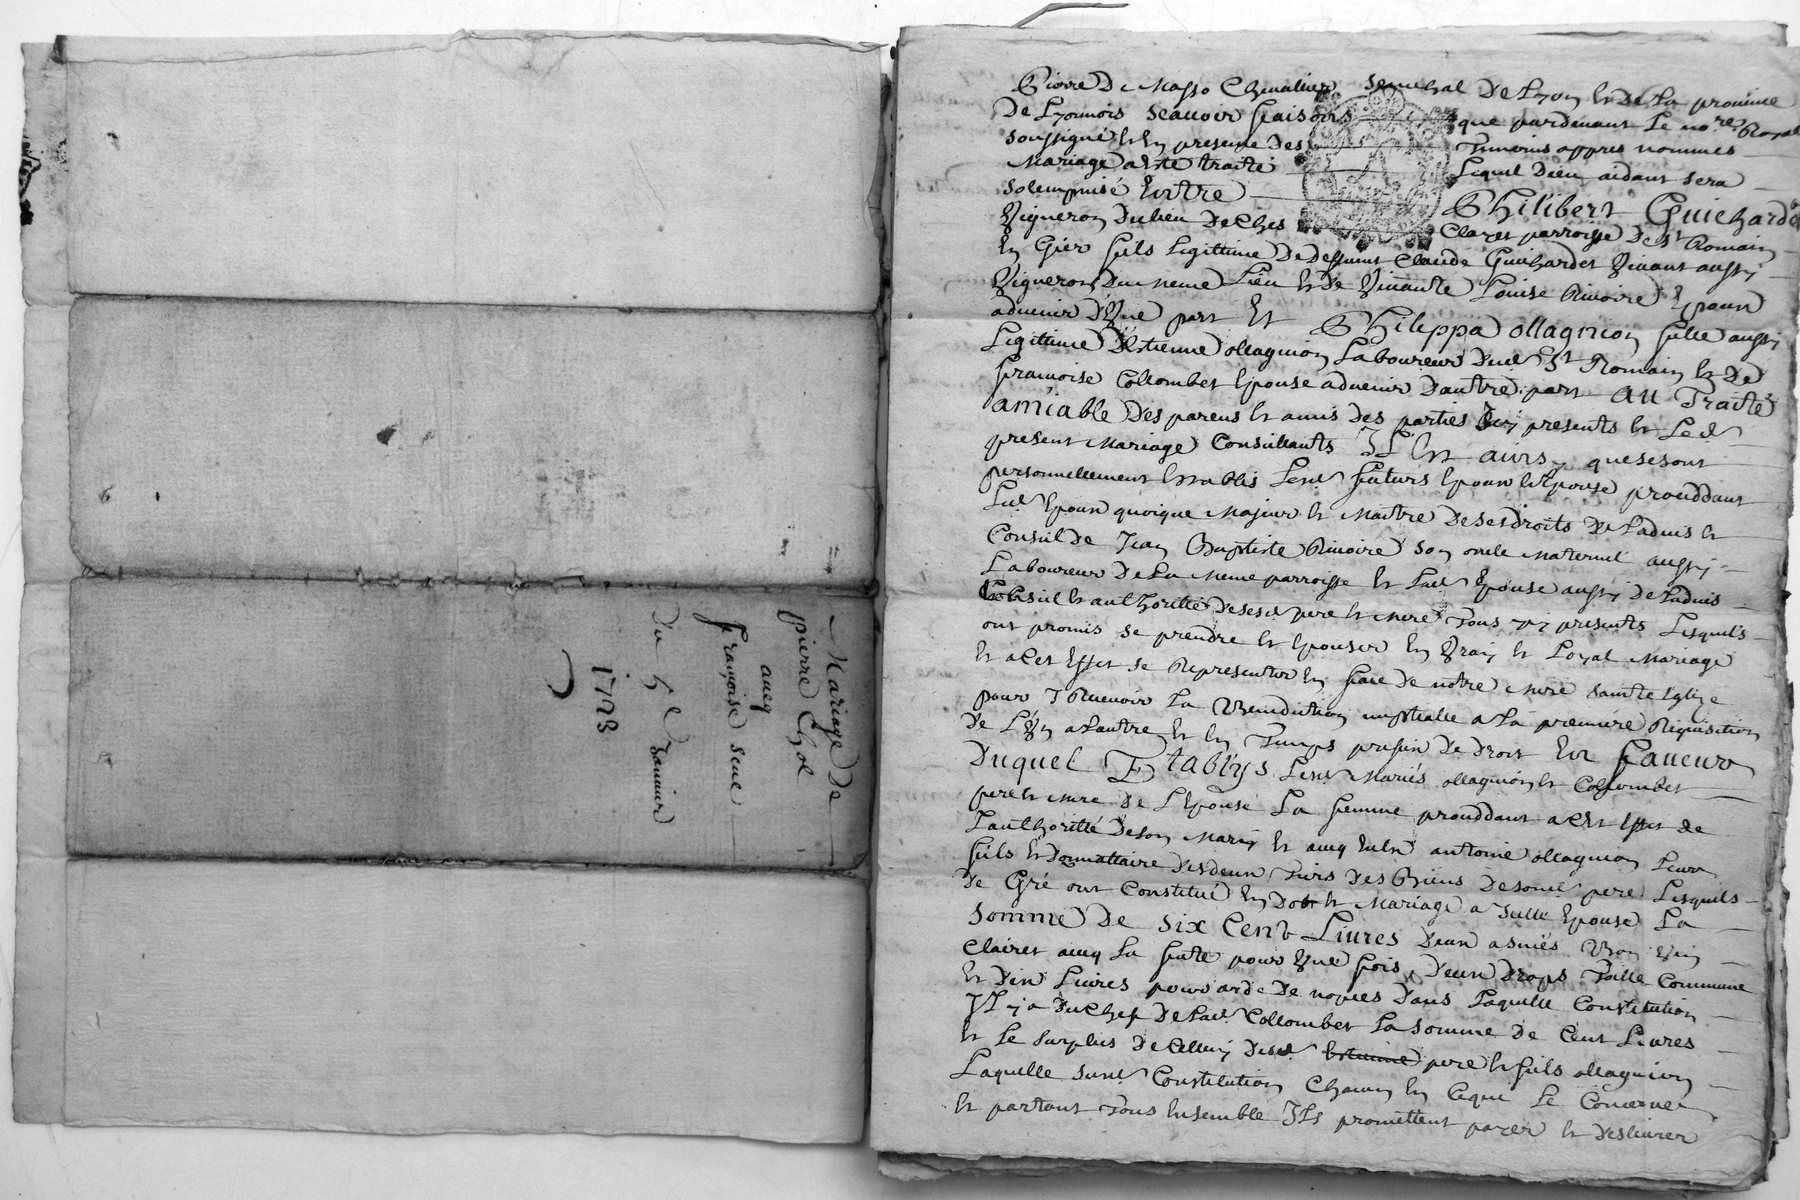 Mariage De
pierre Chol
aueq
françoise seue
Du 5e Januier
1723
Pierre De Masso Cheuallier Senechal De Lyon et De La prouince
De Lyonnois scauoir faisons que pardeuant Le nore Royal
soussigné et en presence Des Temoins appres nommes
Mariage a esté traité Lequel Dieu aidant sera
solempnisé Entre Philibert Guichardet
Vigneron Du lieu De Ches Clares parroisse De St Romain
En Gier fils Legittime De Deffunt Claude Guichardet Viuant aussy
Vigneron Du meme Lieu et De Viuante Louise Riuoire Epoux
aduenir D'Vne part Et Philippa ollagnion fille aussy
Legittime D'Estienne ollagnion Laboureur Dud St Romain et De
francoise Collombet Epouse aduenir D'autre part au Traité
amiable Des parens et amis Des parties Icy presents et Led
present Mariage Consillants Il Est ainsy que se sont
personnellement Establis Lesd futurs Epoux et Epouse proceddant
Led Epoux quoique Majeur et Maitre De ses droits De L'aduis et
Conseil De Jean Baptiste Riuoire son oncle Maternel aussy
Laboureur De La Meme parroisse et Lad Epouse aussy De L'aduis
Conseil et authoritté De sesd pere et mere Tous icy presents Lesquels
ont promis se prendre et Epouser En Vray et Loyal Mariage
Et a Cet Effet se Representer En face De notre Mere Sainte Eglize
pour y Receuoir La Benediction nuptialle a La premiere Requisition
De L'Vn a L'autre Et En Temps prefix De Droit En faueur
Duquel Establys Lesd Mariés ollagnion et Collombet
pere et mere De L'Epouse La femme proceddant a Cet Effet de
L'authoritté De son Mary et aueq Eulx antoine ollagnion Leur
fils et Donnattaire Des deux Tiers Des Biens De sond pere Lesquels
De Gré ont Constitué En Dot et Mariage a Icelle Epouse La
somme De six Cent Liures Deux asnées Bon Vin
Clairet aueq La futte pour Vne fois, Deux Draps Toille Commune
Et Dix Liures pour arde De nopces Dans Laquelle Constitution
Il y a Du Chef De Lad Collombet La somme De Cent Liures
Et Le surplus De Celluy Desd pere et fils ollagnion
Laquelle susd Constitution Chacun En Ce qui Le Concerne
Et partant Tous Ensemble Ils promettent payer et Desliurer